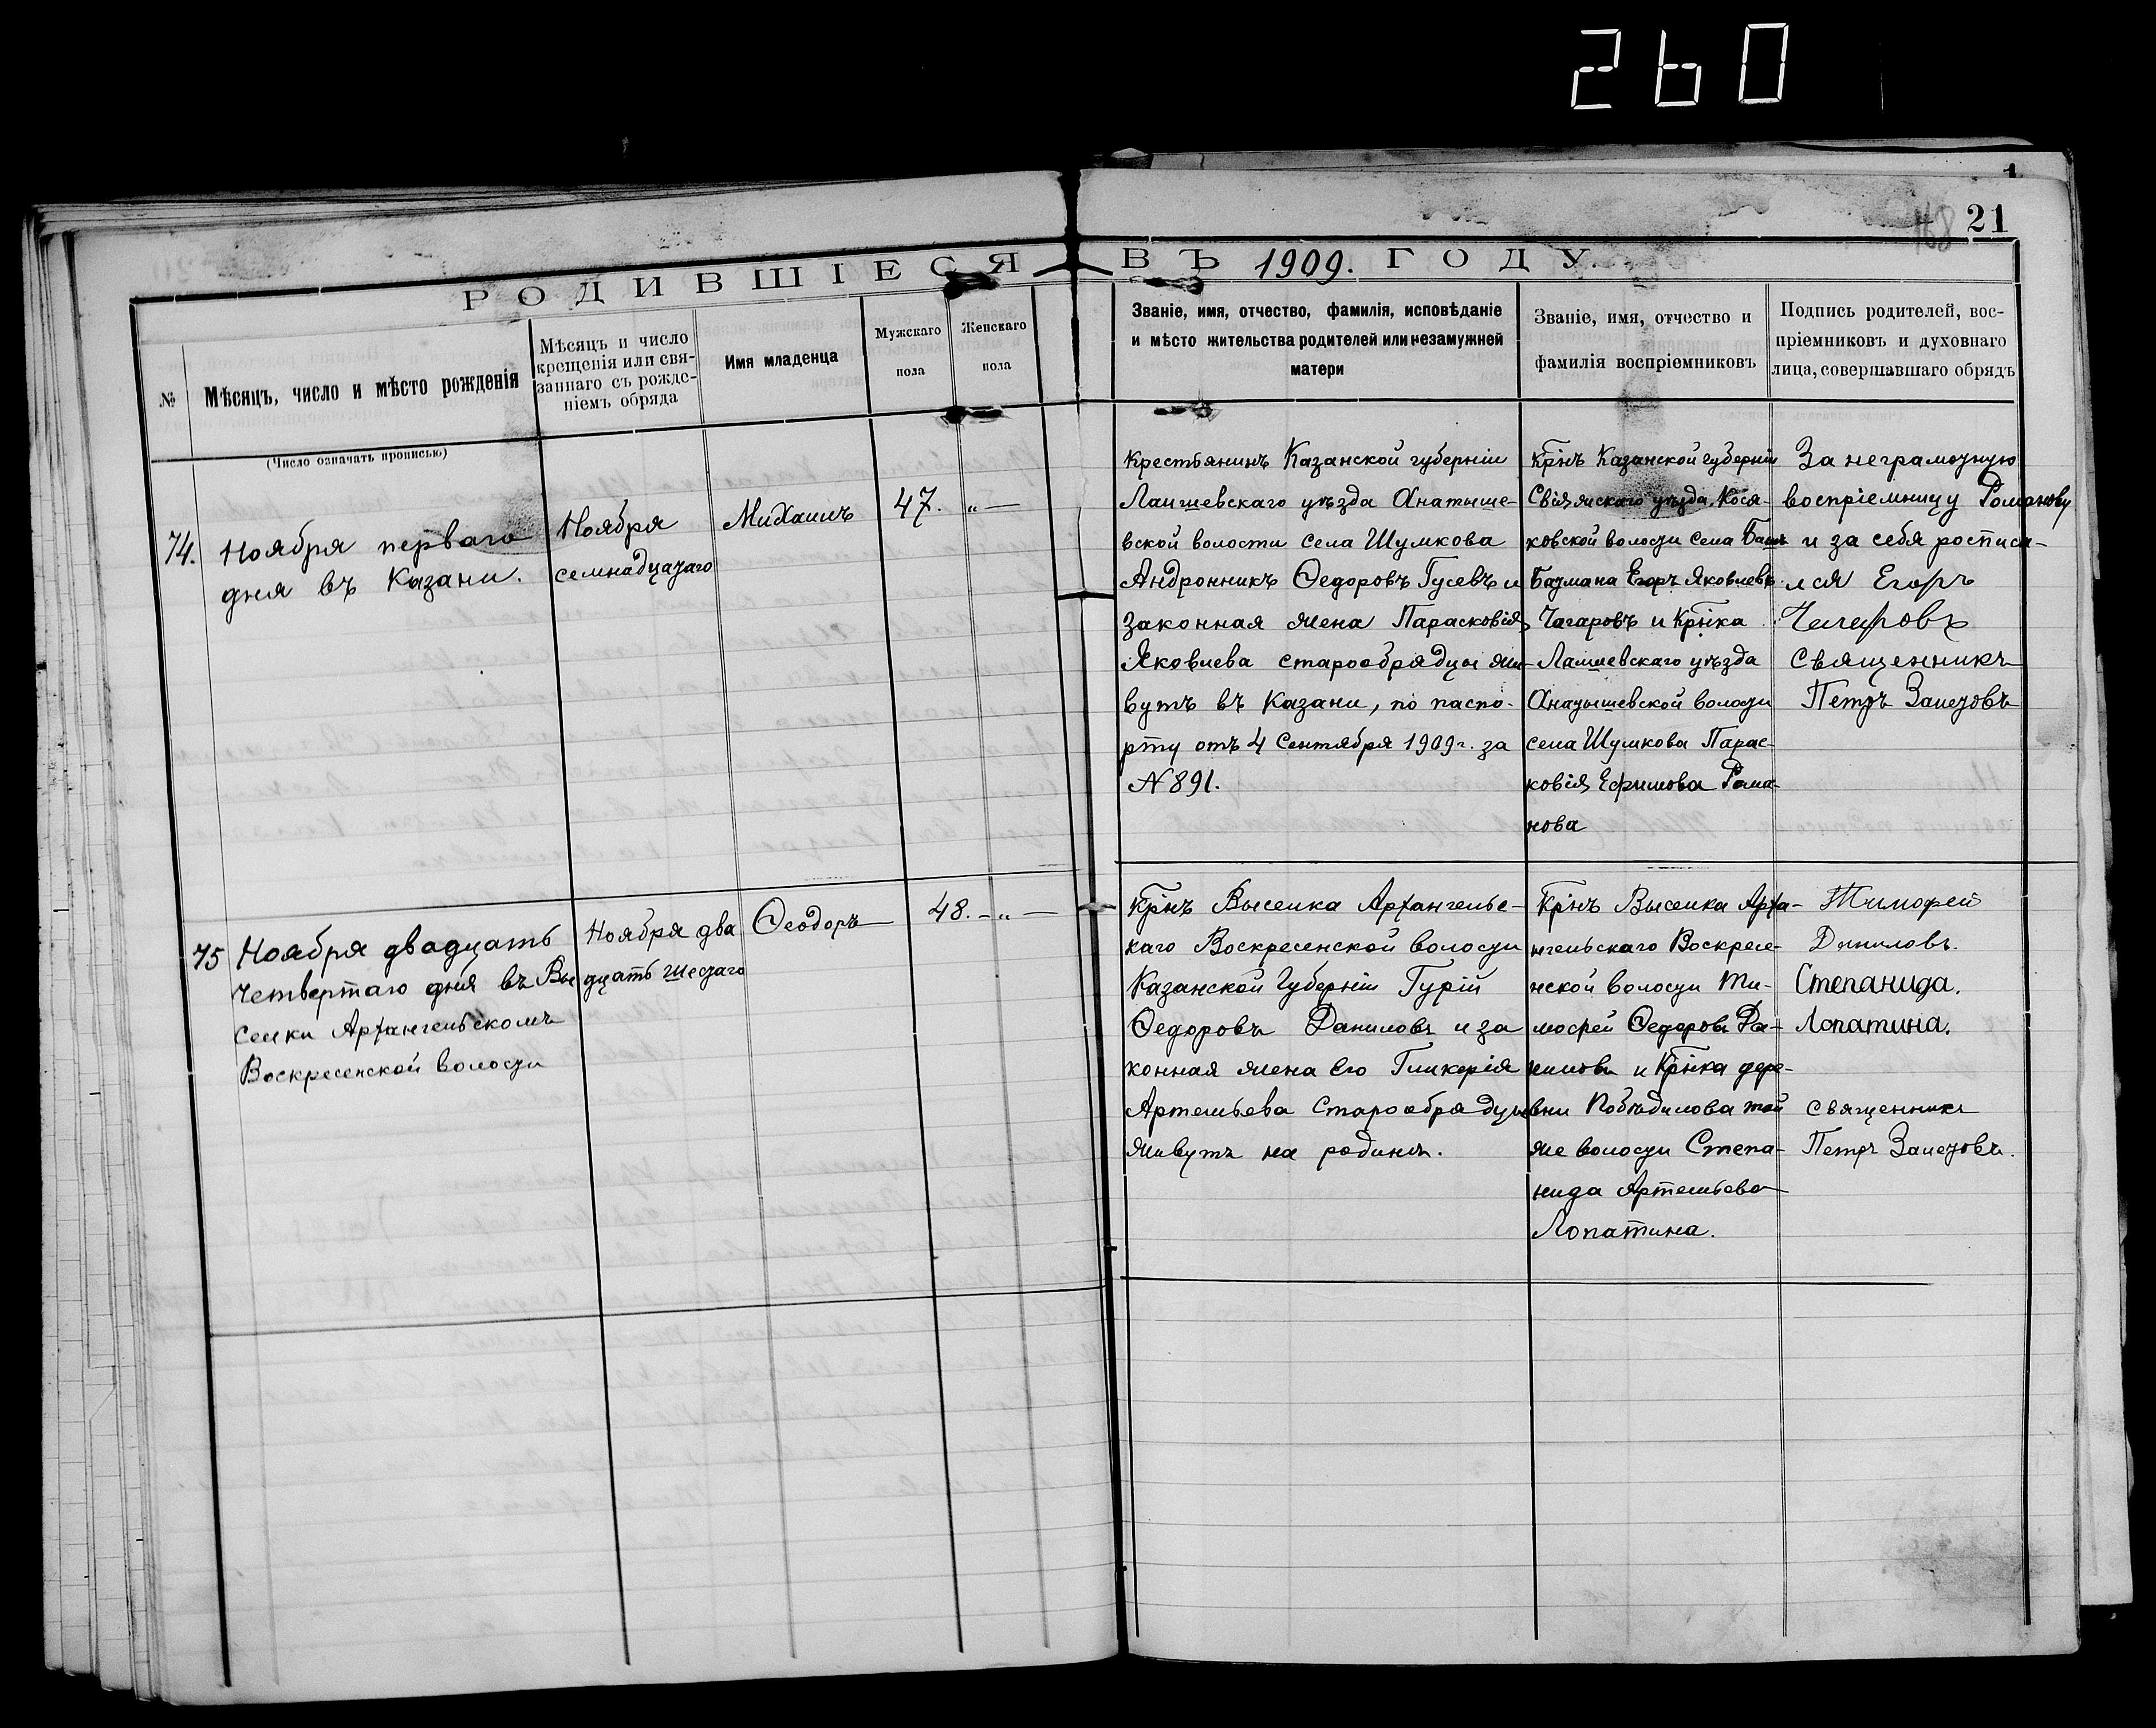 260
1
168 21
РОДИВШІЕСЯ ВЪ 1909. ГОДУ.
№
Мѣсяцъ, число и мѣсто рожденія
(Число означать прописью)
Мѣсяцъ и число
крещенія или свя-
заннаго съ рожде-
ніемъ обряда
Имя младенца
Мужскаго
пола
Женскаго
пола
Званіе, имя, отчество, фамилія, исповѣданіе
и мѣсто жительства родителей или незамужней
матери
Званіе, имя, отчество и
фамилія воспріемниковъ
Подпись родителей, вос-
пріемниковъ и духовнаго
лица, совершавшаго обрядъ
74.
Ноября перваго
дня въ Казани.
Ноября
семнадцатаго
Михаилъ
47.
„ —
Крестьянинъ Казанской губерніи
Лаишевскаго уѣзда Анатыше-
вской волости села Шумкова
Андронникъ Ѳедоровъ Гусевъ и
законная жена Парасковія
Яковлева старообрядцы жи-
вутъ въ Казани, по паспо-
рту отъ 4 Сентября 1909 г. за
№ 891.
Крнъ Казанской губерніи
Свіяжскаго уѣзда, Кося-
ковской волости села Баш
Батмана Егоръ Яковлевъ
Чагаровъ и Крнка
Лаишевскаго уѣзда
Анатышевской волости
села Шумкова Парас-
ковія Ефимова Рома-
нова
За неграмотную
воспріемницу Романову
и за себя росписа-
лся Егоръ
Чагаровъ
Священникъ
Петръ Залетовъ
75
Ноября двадцать
четвертаго дня въ Вы
селки Архангельскомъ
Воскресенской волости
Ноября два
дцать шестаго
Ѳеодоръ
48. — „ —
Крнъ Выселка Архангельс-
каго Воскресенской волости
Казанской Губерніи Гурій
Ѳедоровъ Даниловъ и за
конная жена его Гликерія
Артемьева Старообрядцы
живутъ на родинѣ.
Крнъ Выселка Арха-
нгельскаго Воскресе-
нской волости Ти-
мофей Ѳедоровъ Да-
ниловъ и Крнка дере-
вни Побѣдилова той
же волости Степа-
нида Артемьева
Лопатина.
Тимофей
Даниловъ.
Степанида.
Лопатина.
Священникъ
Петръ Залетовъ.